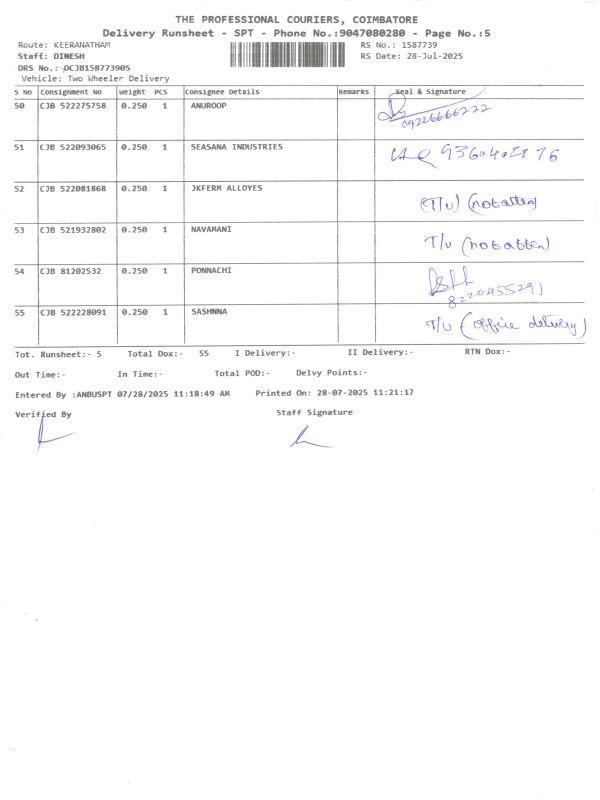 THE PROFESSIONAL COURIERS, COIMBATORE
Delivery Runsheet - SPT - Phone No.:9047080280 - Page No.:5
Route: KEERANATHAM RS No.: 1587739
Staff: DINESH RS Date: 28-Jul-2025
DRS No.: DCJB158773905
Vehicle: Two Wheeler Delivery
S NO Consignment No Weight PCS Consignee Details Remarks Seal & Signature
50 CJB 522275758 0.250 1 ANUROOP
09226666222
51 CJB 522093065 0.250 1 SEASANA INDUSTRIES
52 CJB 522081868 0.250 1 JKFERM ALLOYES
(T/u) (not atten)
53 CJB 521932802 0.250 1 NAVAMANI
T/u (not atten)
54 CJB 81202532 0.250 1 PONNACHI
8220455291
55 CJB 522228091 0.250 1 SASHNNA
T/u (office delivery)
Tot. Runsheet:- 5 Total Dox:- 55 I Delivery:- II Delivery:- RTN Dox:-
Out Time:- In Time:- Total POD:- Delvy Points:-
Entered By :ANBUSPT 07/28/2025 11:18:49 AM Printed On: 28-07-2025 11:21:17
Verified By Staff Signature